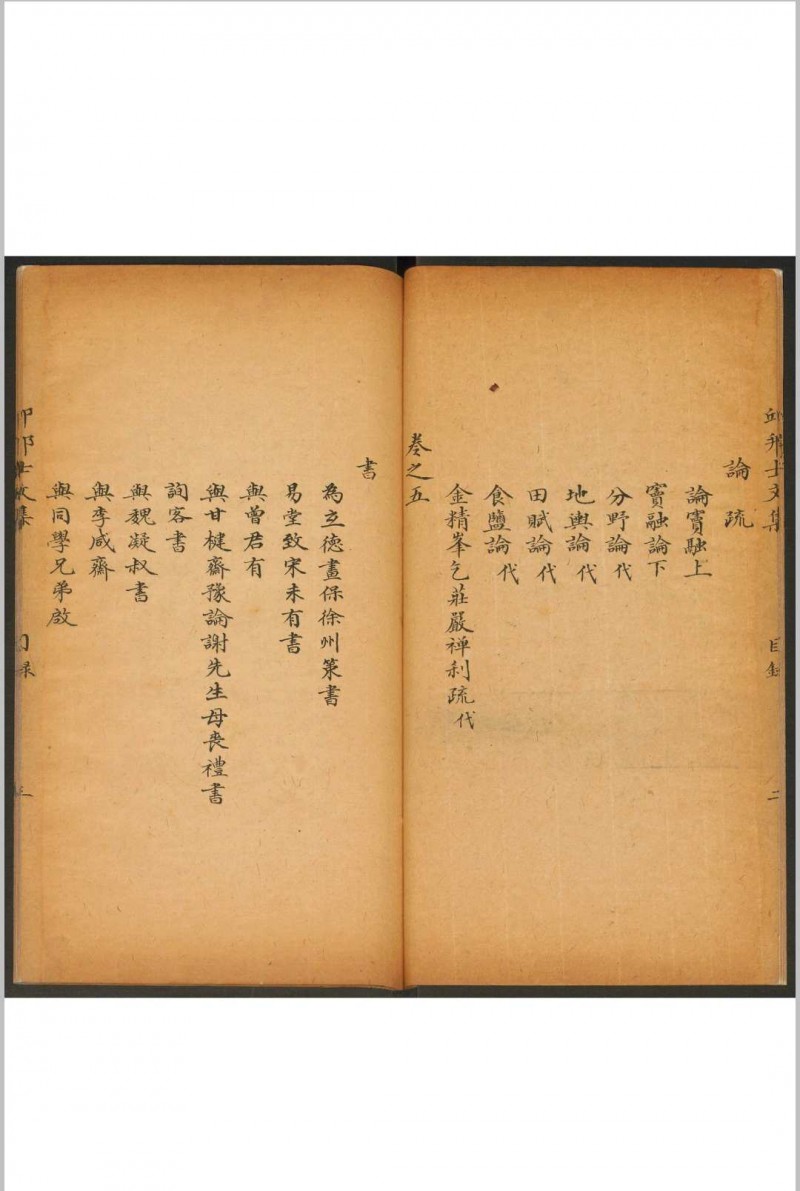 邱邦士文集 目錄 二
論疏
論竇融上
竇融論下
分野論代
地輿論代
田賦論代
食鹽論代
金精峯乞莊嚴禅利疏代
卷之五
書
為立德畫保徐州策書
易堂致宋未有書
與曾君有
與甘楗齋豫論謝先生母喪禮書
詢客書
與魏凝叔書
與李咸齋
與同學兄弟啟
目錄 三